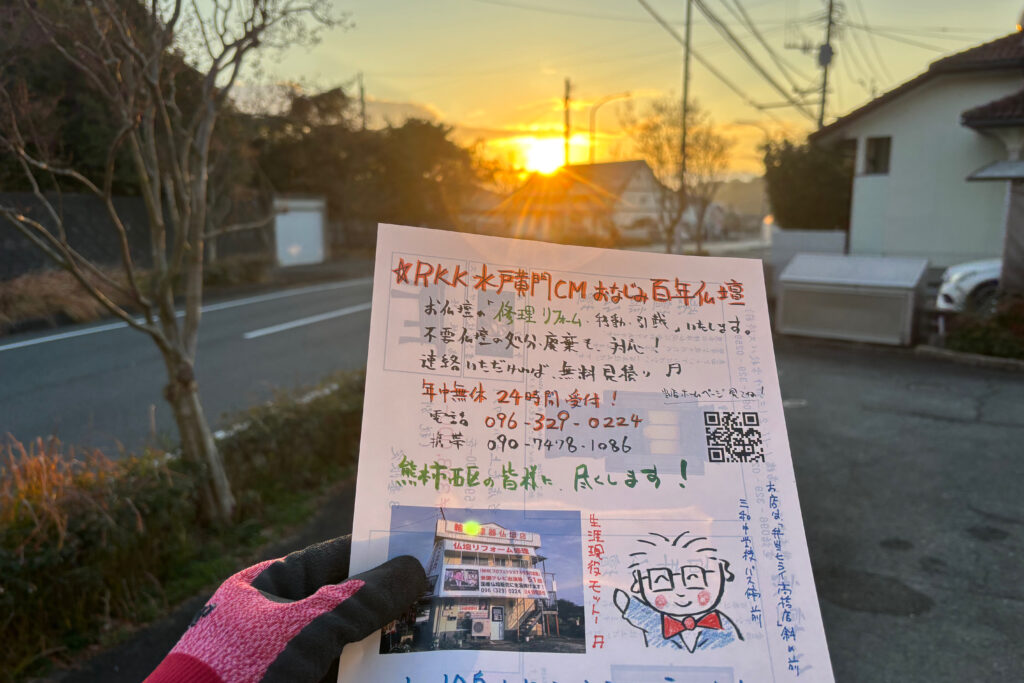 ☆RKK 水戸黄門CM おなじみ百年仏壇
お仏壇の「修理リフォーム・移動・引越」いたします。
不要仏壇の処分、廃棄も、対応！
連絡いただければ、無料見積り
年中無休 24時間受付！
当店ホームページ見てね！
電話 096-329-0224
携帯 090-7478-1086
熊本市西区の皆様に、尽くします！
仏壇リフォーム修理
096 (329) 0224
生涯現役モットー
お店は「弁当ヒライ高橋店」斜め前
バス停前